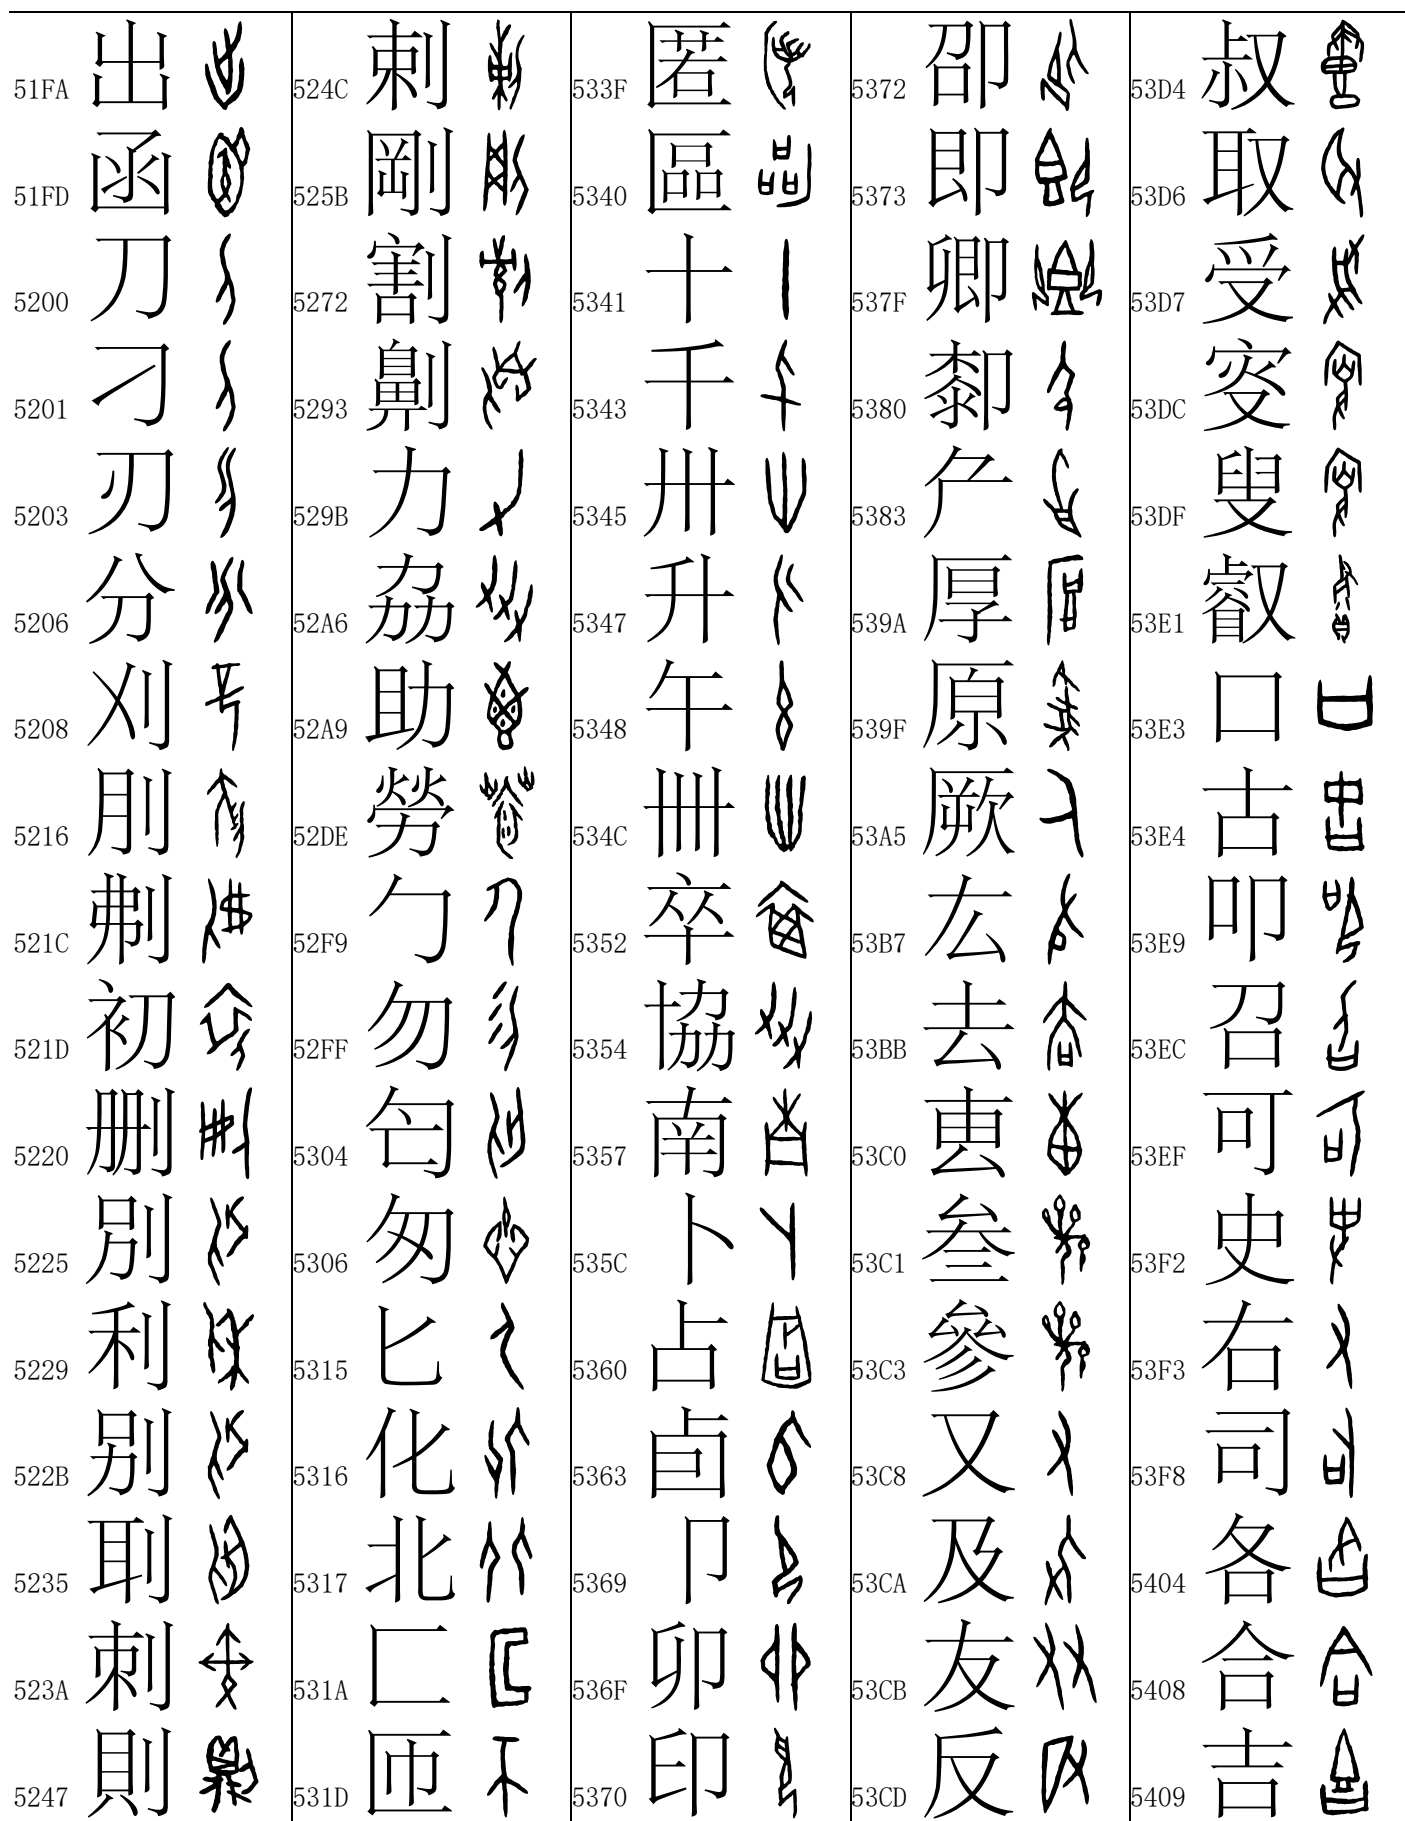 51FA 出
51FD 函
5200 刀
5201 刁
5203 刃
5206 分
5208 刈
5216 刖
521C 刜
521D 初
5220 删
5225 別
5229 利
522B 别
5235 刵
523A 刺
5247 則
524C 剌
525B 剛
5272 割
5293 劓
529B 力
52A6 劦
52A9 助
52DE 勞
52F9 勹
52FF 勿
5304 匄
5306 匆
5315 匕
5316 化
5317 北
531A 匚
531D 匝
533F 匿
5340 區
5341 十
5343 千
5345 卅
5347 升
5348 午
534C 卌
5352 卒
5354 協
5357 南
535C 卜
5360 占
5363 卣
5369 卩
536F 卯
5370 印
5372 卲
5373 即
537F 卿
5380 厀
5383 厃
539A 厚
539F 原
53A5 厥
53B7 厷
53BB 去
53C0 叀
53C1 叁
53C3 參
53C8 又
53CA 及
53CB 友
53CD 反
53D4 叔
53D6 取
53D7 受
53DC 叜
53DF 叟
53E1 叡
53E3 口
53E4 古
53E9 叩
53EC 召
53EF 可
53F2 史
53F3 右
53F8 司
5404 各
5408 合
5409 吉